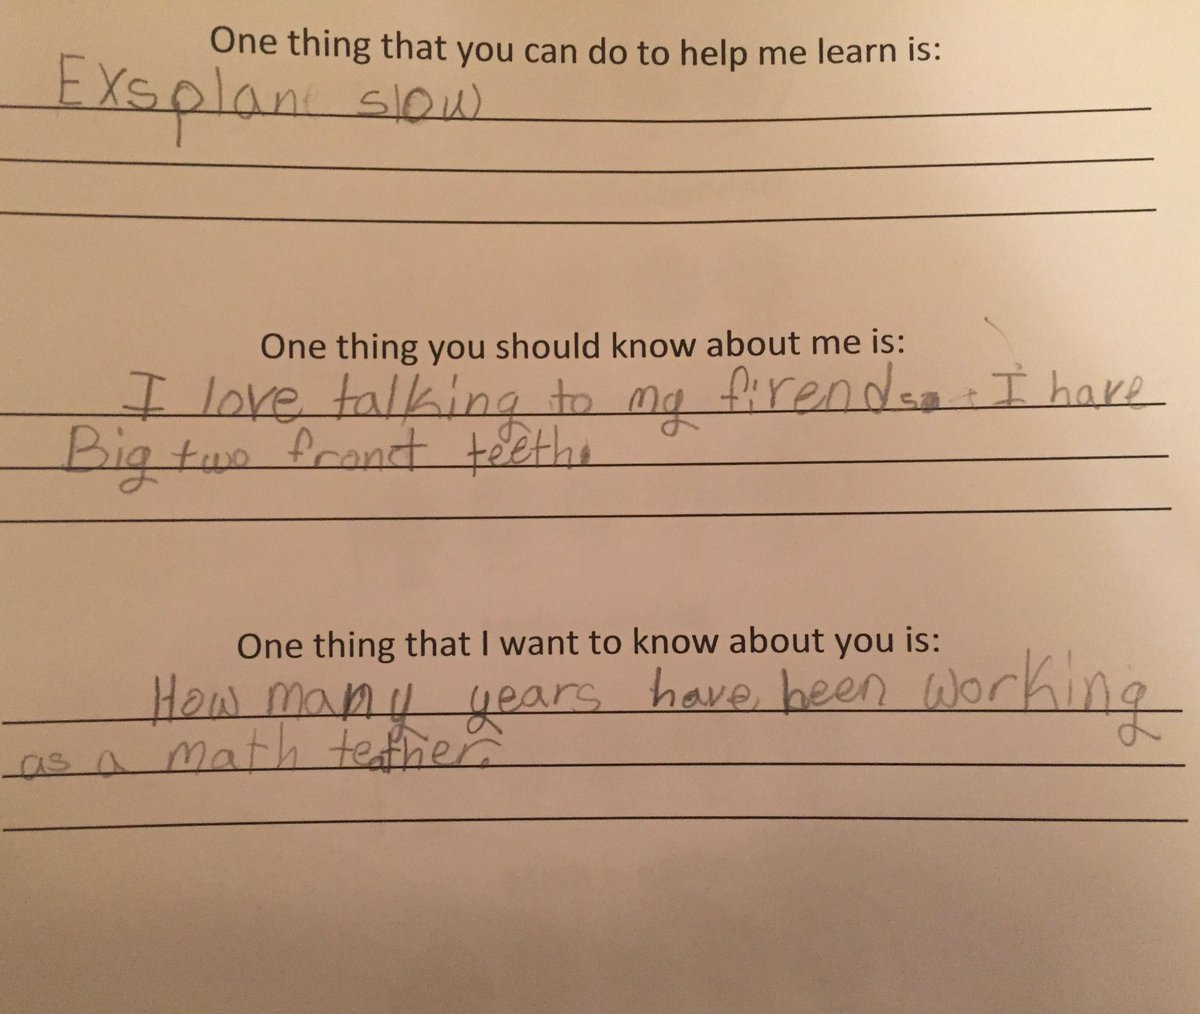 One thing that you can do to help me learn is:
Exsplan slow
One thing you should know about me is:
I love talking to my firends. I have
Big two fronct teeth.
One thing that I want to know about you is:
How many years have been working
as a math teather.